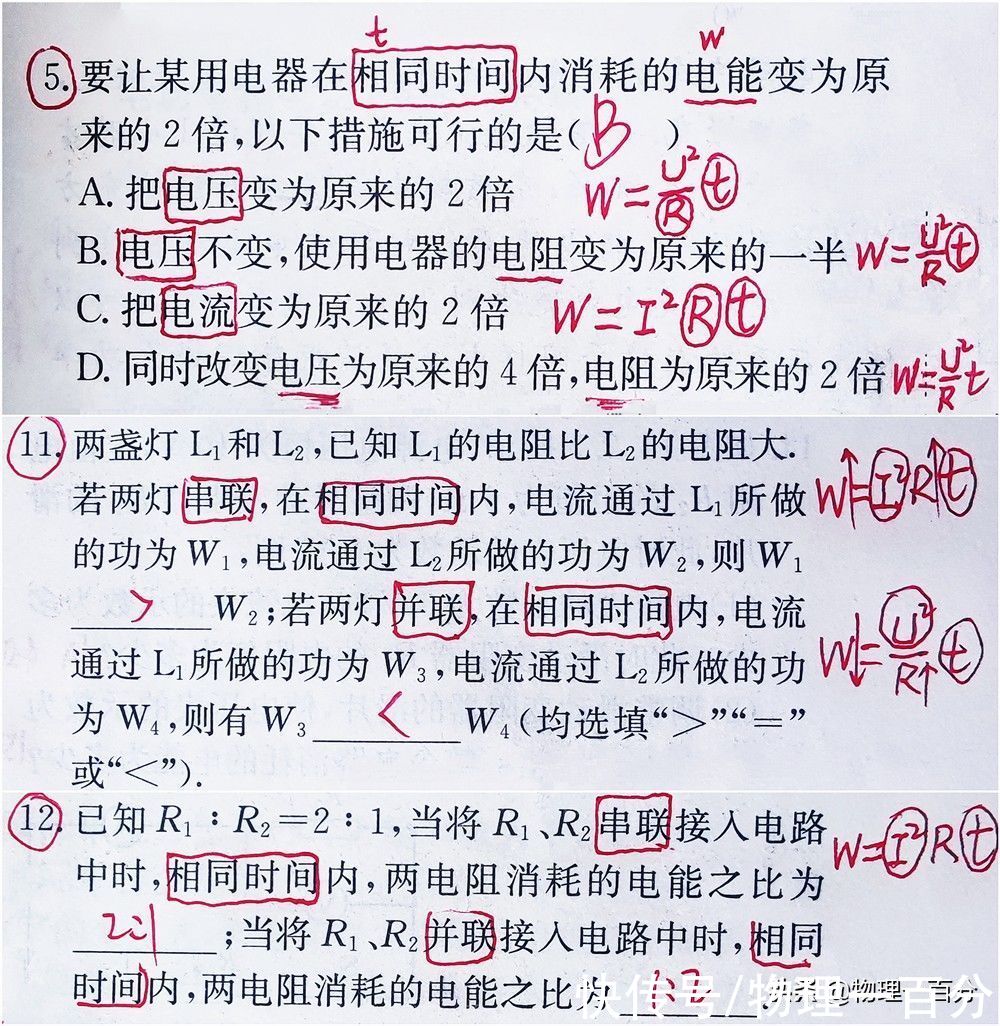 t w
5. 要让某用电器在相同时间内消耗的电能变为原
来的 2 倍,以下措施可行的是( B )
A. 把电压变为原来的 2 倍 W=U²/R t
B. 电压不变,使用电器的电阻变为原来的一半 W=U²/R t
C. 把电流变为原来的 2 倍 W=I²Rt
D. 同时改变电压为原来的 4 倍,电阻为原来的 2 倍 W=U²/R t
11. 两盏灯 L₁和 L₂,已知 L₁的电阻比 L₂的电阻大.
若两灯串联,在相同时间内,电流通过 L₁所做 W↑=I²R↑t
的功为 W₁,电流通过 L₂所做的功为 W₂,则 W₁
> W₂;若两灯并联,在相同时间内,电流
通过 L₁所做的功为 W₃,电流通过 L₂所做的功 W↓=U²/R↑ t
为 W₄,则有 W₃ < W₄(均选填“>”“=”
或“<”).
12. 已知 R₁∶R₂=2∶1,当将 R₁、R₂串联接入电路
中时,相同时间内,两电阻消耗的电能之比为 W=I²Rt
2:1 ;当将 R₁、R₂并联接入电路中时,相同
时间内,两电阻消耗的电能之比为 1:2
快传号/物理一百分
@物理一百分